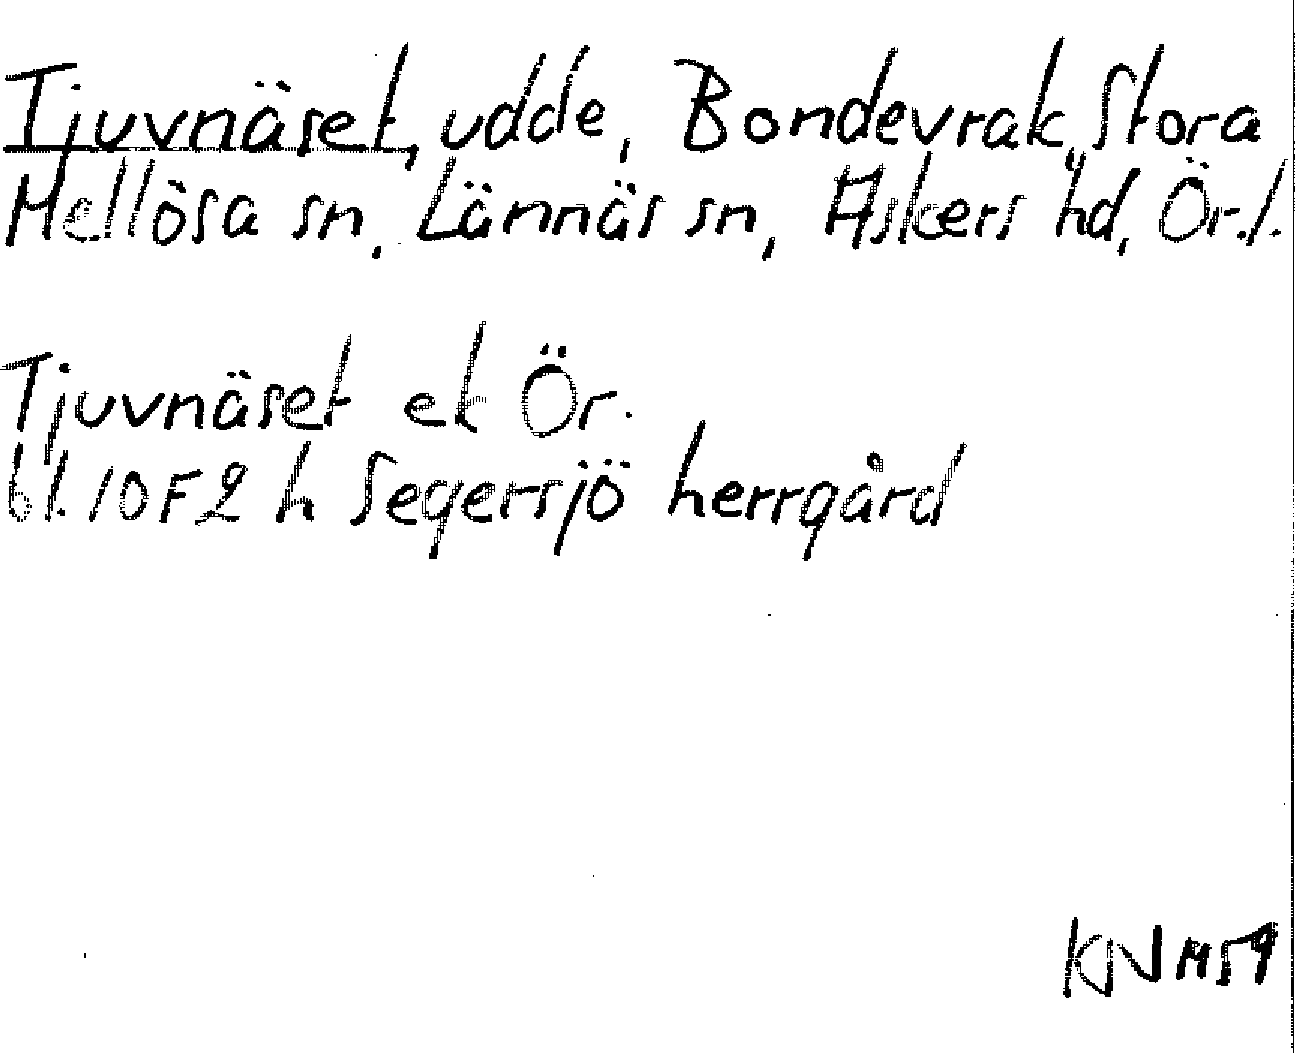 Tjuvnäset, udde, Bondevrak, Stora
Mellösa sn, Lännäs sn, Askers hd, Ör.l.
Tjuvnäset ek Ör.
bl. 10F2 h Segersjö herrgård